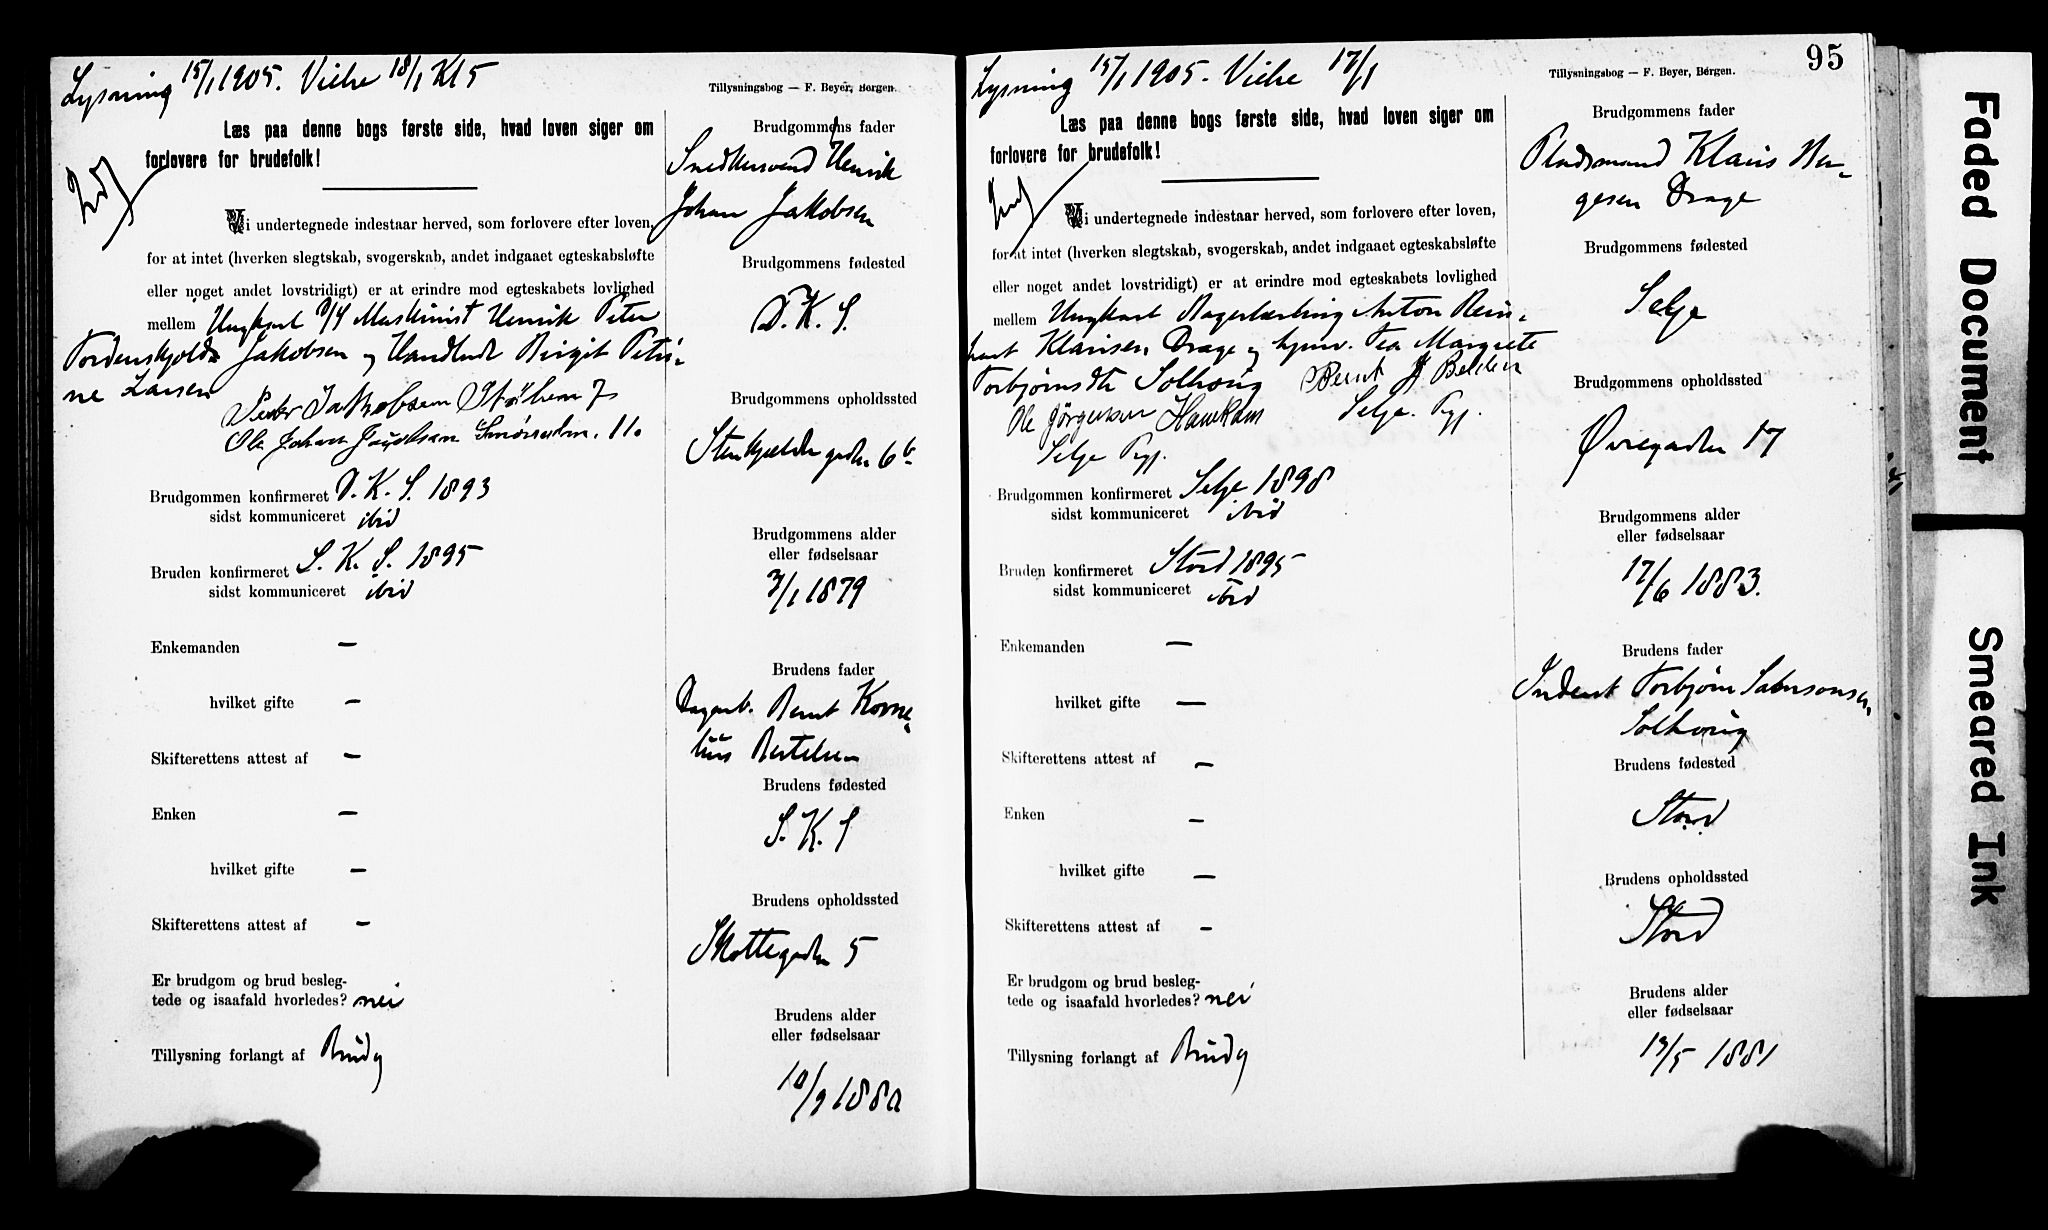 Lysning 15/1 1905. Vielse 18/1 Kl 5
Tillysningsbog — F. Beyer, Bergen.
Læs paa denne bogs første side, hvad loven siger om
forlovere for brudefolk!
Vi undertegnede indestaar herved, som forlovere efter loven,
for at intet (hverken slegtskab, svogerskab, andet indgaaet egteskabsløfte
eller noget andet lovstridigt) er at erindre mod egteskabets lovlighed
mellem Ungkarl Maskinist Henrik Peter
Tordenskjold Jakobsen og Birgit Petri-
ne Larsen
Peder Jakobsen Stølen 7
Ole Johan 11.
Brudgommen konfirmeret D. K. S. 1893
sidst kommuniceret ibid
Bruden konfirmeret S. K. S. 1895
sidst kommuniceret ibid
Enkemanden —
hvilket gifte —
Skifterettens attest af —
Enken —
hvilket gifte —
Skifterettens attest af —
Er brudgom og brud besleg-
tede og isaafald hvorledes? nei
Tillysning forlangt af Brudg
Brudgommens fader
Snedkersvend Henrik
Johan Jakobsen
Brudgommens fødested
D. K. S.
Brudgommens opholdssted
Stenkjeldergaden 6b
Brudgommens alder
eller fødselsaar
3/1 1879
Brudens fader
Dagarb. Bernt Korne-
lius Bertelsen
Brudens fødested
S. K. S
Brudens opholdssted
Skottegaden 5
Brudens alder
eller fødselsaar
10/9 1880
Lysning 15/1 1905. Vielse 17/1
Tillysningsbog — F. Beyer, Bergen.
95
Læs paa denne bogs første side, hvad loven siger om
forlovere for brudefolk!
Vi undertegnede indestaar herved, som forlovere efter loven,
for at intet (hverken slegtskab, svogerskab, andet indgaaet egteskabsløfte
eller noget andet lovstridigt) er at erindre mod egteskabets lovlighed
mellem Ungkarl Bagerlærling Anton Rein-
hart Klausen Drage og hjmv. Tea Margrete
Torbjørnsdtr Solhoug Bernt J
Ole Jörgensen Selje. Pgj.
Selje Pgj.
Brudgommen konfirmeret Selje 1898
sidst kommuniceret ibid
Bruden konfirmeret Stord 1895
sidst kommuniceret ibid
Enkemanden —
hvilket gifte —
Skifterettens attest af —
Enken —
hvilket gifte —
Skifterettens attest af —
Er brudgom og brud besleg-
tede og isaafald hvorledes? nei
Tillysning forlangt af Brudg
Brudgommens fader
Pladsmand Klaus
Drage
Brudgommens fødested
Selje
Brudgommens opholdssted
Øvregaden 17
Brudgommens alder
eller fødselsaar
17/6 1883.
Brudens fader
Torbjørn
Solhoug
Brudens fødested
Stord
Brudens opholdssted
Stord
Brudens alder
eller fødselsaar
19/5 1881
Faded Document
Smeared Ink